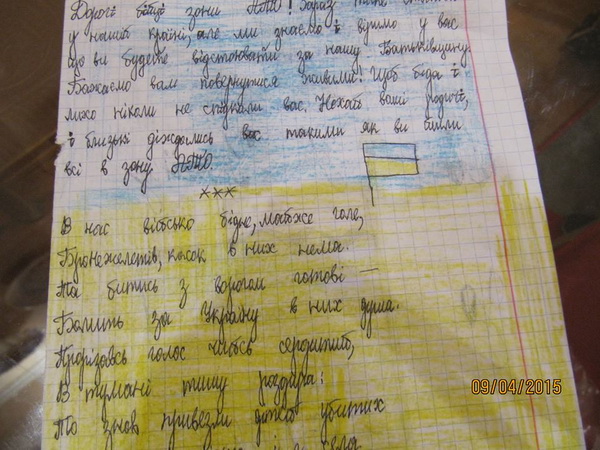 Дорогі бійці зони АТО! Зараз таке
у нашій країні, але ми знаємо і віримо у вас
що ви будете відстоювати за нашу Батьківщину.
Бажаємо вам повернутися живими! Щоб біда і
лихо ніколи не спіткали вас. Нехай ваші родичі,
і близькі діждались вас такими як ви пішли
всі в зону АТО.
***
В нас військо бідне, майже голе,
Бронежелетів, касок в них нема.
Та битись з ворогом готові —
Болить за Україну в них душа.
Прорізавсь голос чийсь сердитий,
В тумані тишу роздира:
То знов привезли двох убитих
09/04/2015